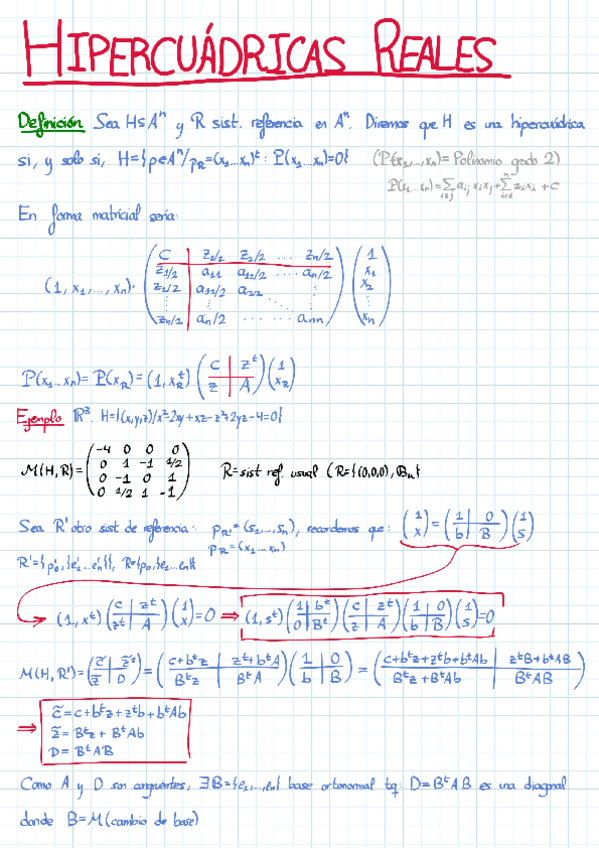 HIPERCUÁDRICAS REALES
Definición Sea H⊆Aⁿ y R sist. referencia en Aⁿ. Diremos que H es una hipercuádrica
si, y solo si, H={p∈Aⁿ/p_R=(x₁...xₙ)ᵗ: P(x₁...xₙ)=0} (P(x₁,...,xₙ)= Polinomio grado 2)
P(x₁...xₙ)=∑_{i≤j} aᵢⱼ xᵢxⱼ+∑ zᵢxᵢ + C
En forma matricial sería:
(1, x₁,..., xₙ)· (C | z₁/2 z₂/2 ... zₙ/2 ; z₁/2 | a₁₁ a₁₂/2 ... aₙ/2 ; z₂/2 | a₁₂/2 a₂₂ ⋮ ; ⋮ ; zₙ/2 | aₙ/2 ... aₙₙ) (1 ; x₁ ; x₂ ; ⋮ ; xₙ)
P(x₁...xₙ)= P(x_R)= (1, x_Rᵗ) (C | zᵗ ; z | A) (1 ; x_R)
Ejemplo R³. H={(x,y,z)/x²-2xy+xz-z²+2yz-4=0}
M(H,R)= (-4 0 0 0 ; 0 1 -1 1/2 ; 0 -1 0 1 ; 0 1/2 1 -1) R=sist ref. usual (R={(0,0,0), Bu}
Sea R' otro sist de referencia: p_R'=(s₁...,sₙ), recordemos que: (1 ; x) = (1 | 0 ; b | B) (1 ; s)
p_R=(x₁...xₙ)
R'={p'₀,{e'₁...e'ₙ}}, R={p₀,{e₁...eₙ}}
(1, xᵗ) (c | zᵗ ; zᵗ | A) (1 ; x) =0 ⇒ (1, sᵗ) (1 | bᵗ ; 0 | Bᵗ) (c | zᵗ ; z | A) (1 | 0 ; b | B) (1 ; s) =0
M(H,R')= (c̃ | z̃ᵗ ; z̃ | D) = (c+bᵗz | zᵗ+bᵗA ; Bᵗz | BᵗA) (1 | 0 ; b | B) = (c+bᵗz+zᵗb+bᵗAb | zᵗB+bᵗAB ; Bᵗz+BᵗAb | BᵗAB)
⇒ c̃=c+bᵗz+zᵗb+bᵗAb
z̃=Bᵗz + BᵗAb
D=BᵗAB
Como A y D son congruentes, ∃B={e₁,...,eₙ} base ortonormal tq: D=BᵗAB es una diagonal
donde B=M(cambio de base)